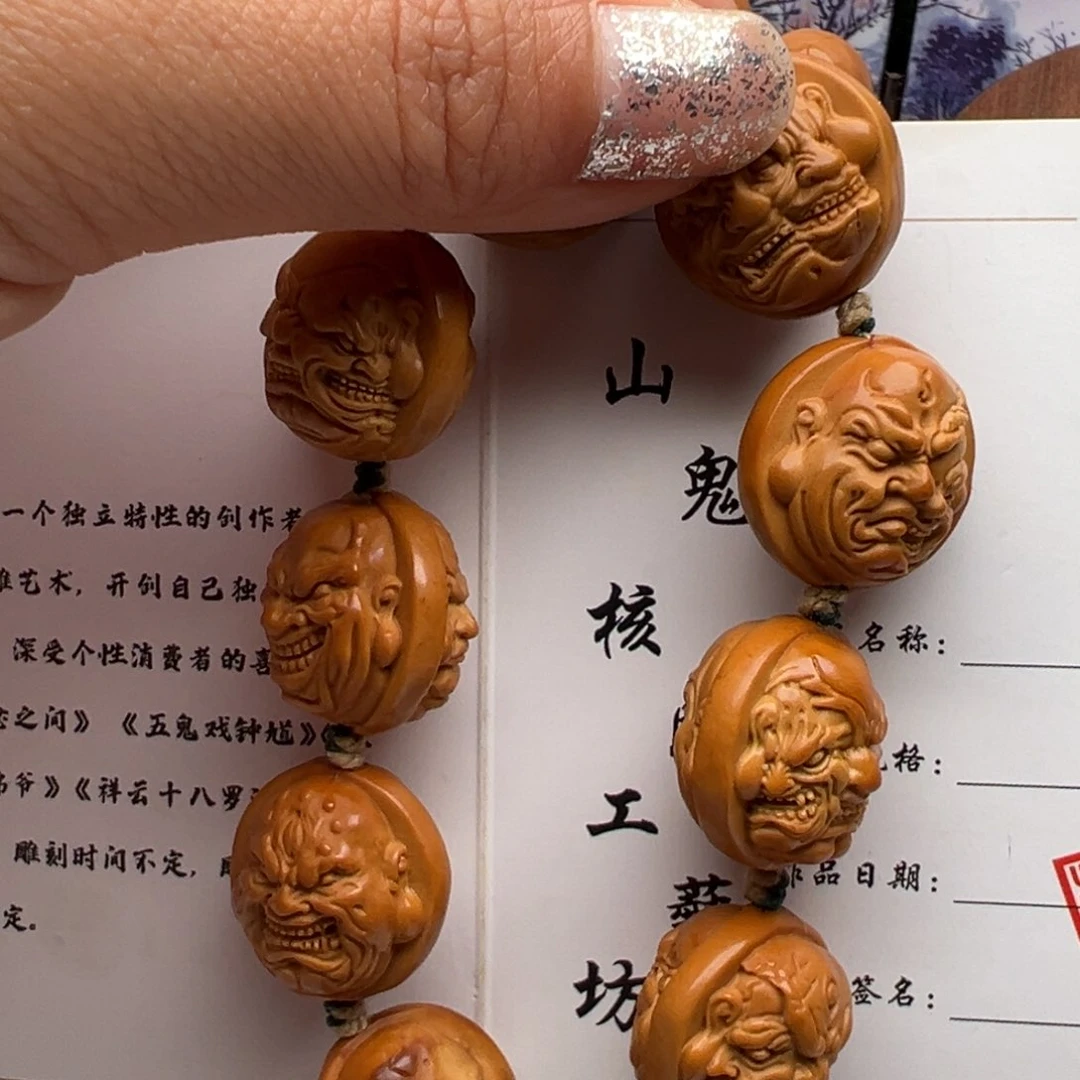 一个独立特性的创作者
艺术，开创自己独
深受个性消费者的喜
之间》《五鬼戏钟馗》《
爷》《祥云十八罗
雕刻时间不定，
定。
山
鬼
核
工
艺
坊
名称：
格：
作品日期：
签名：